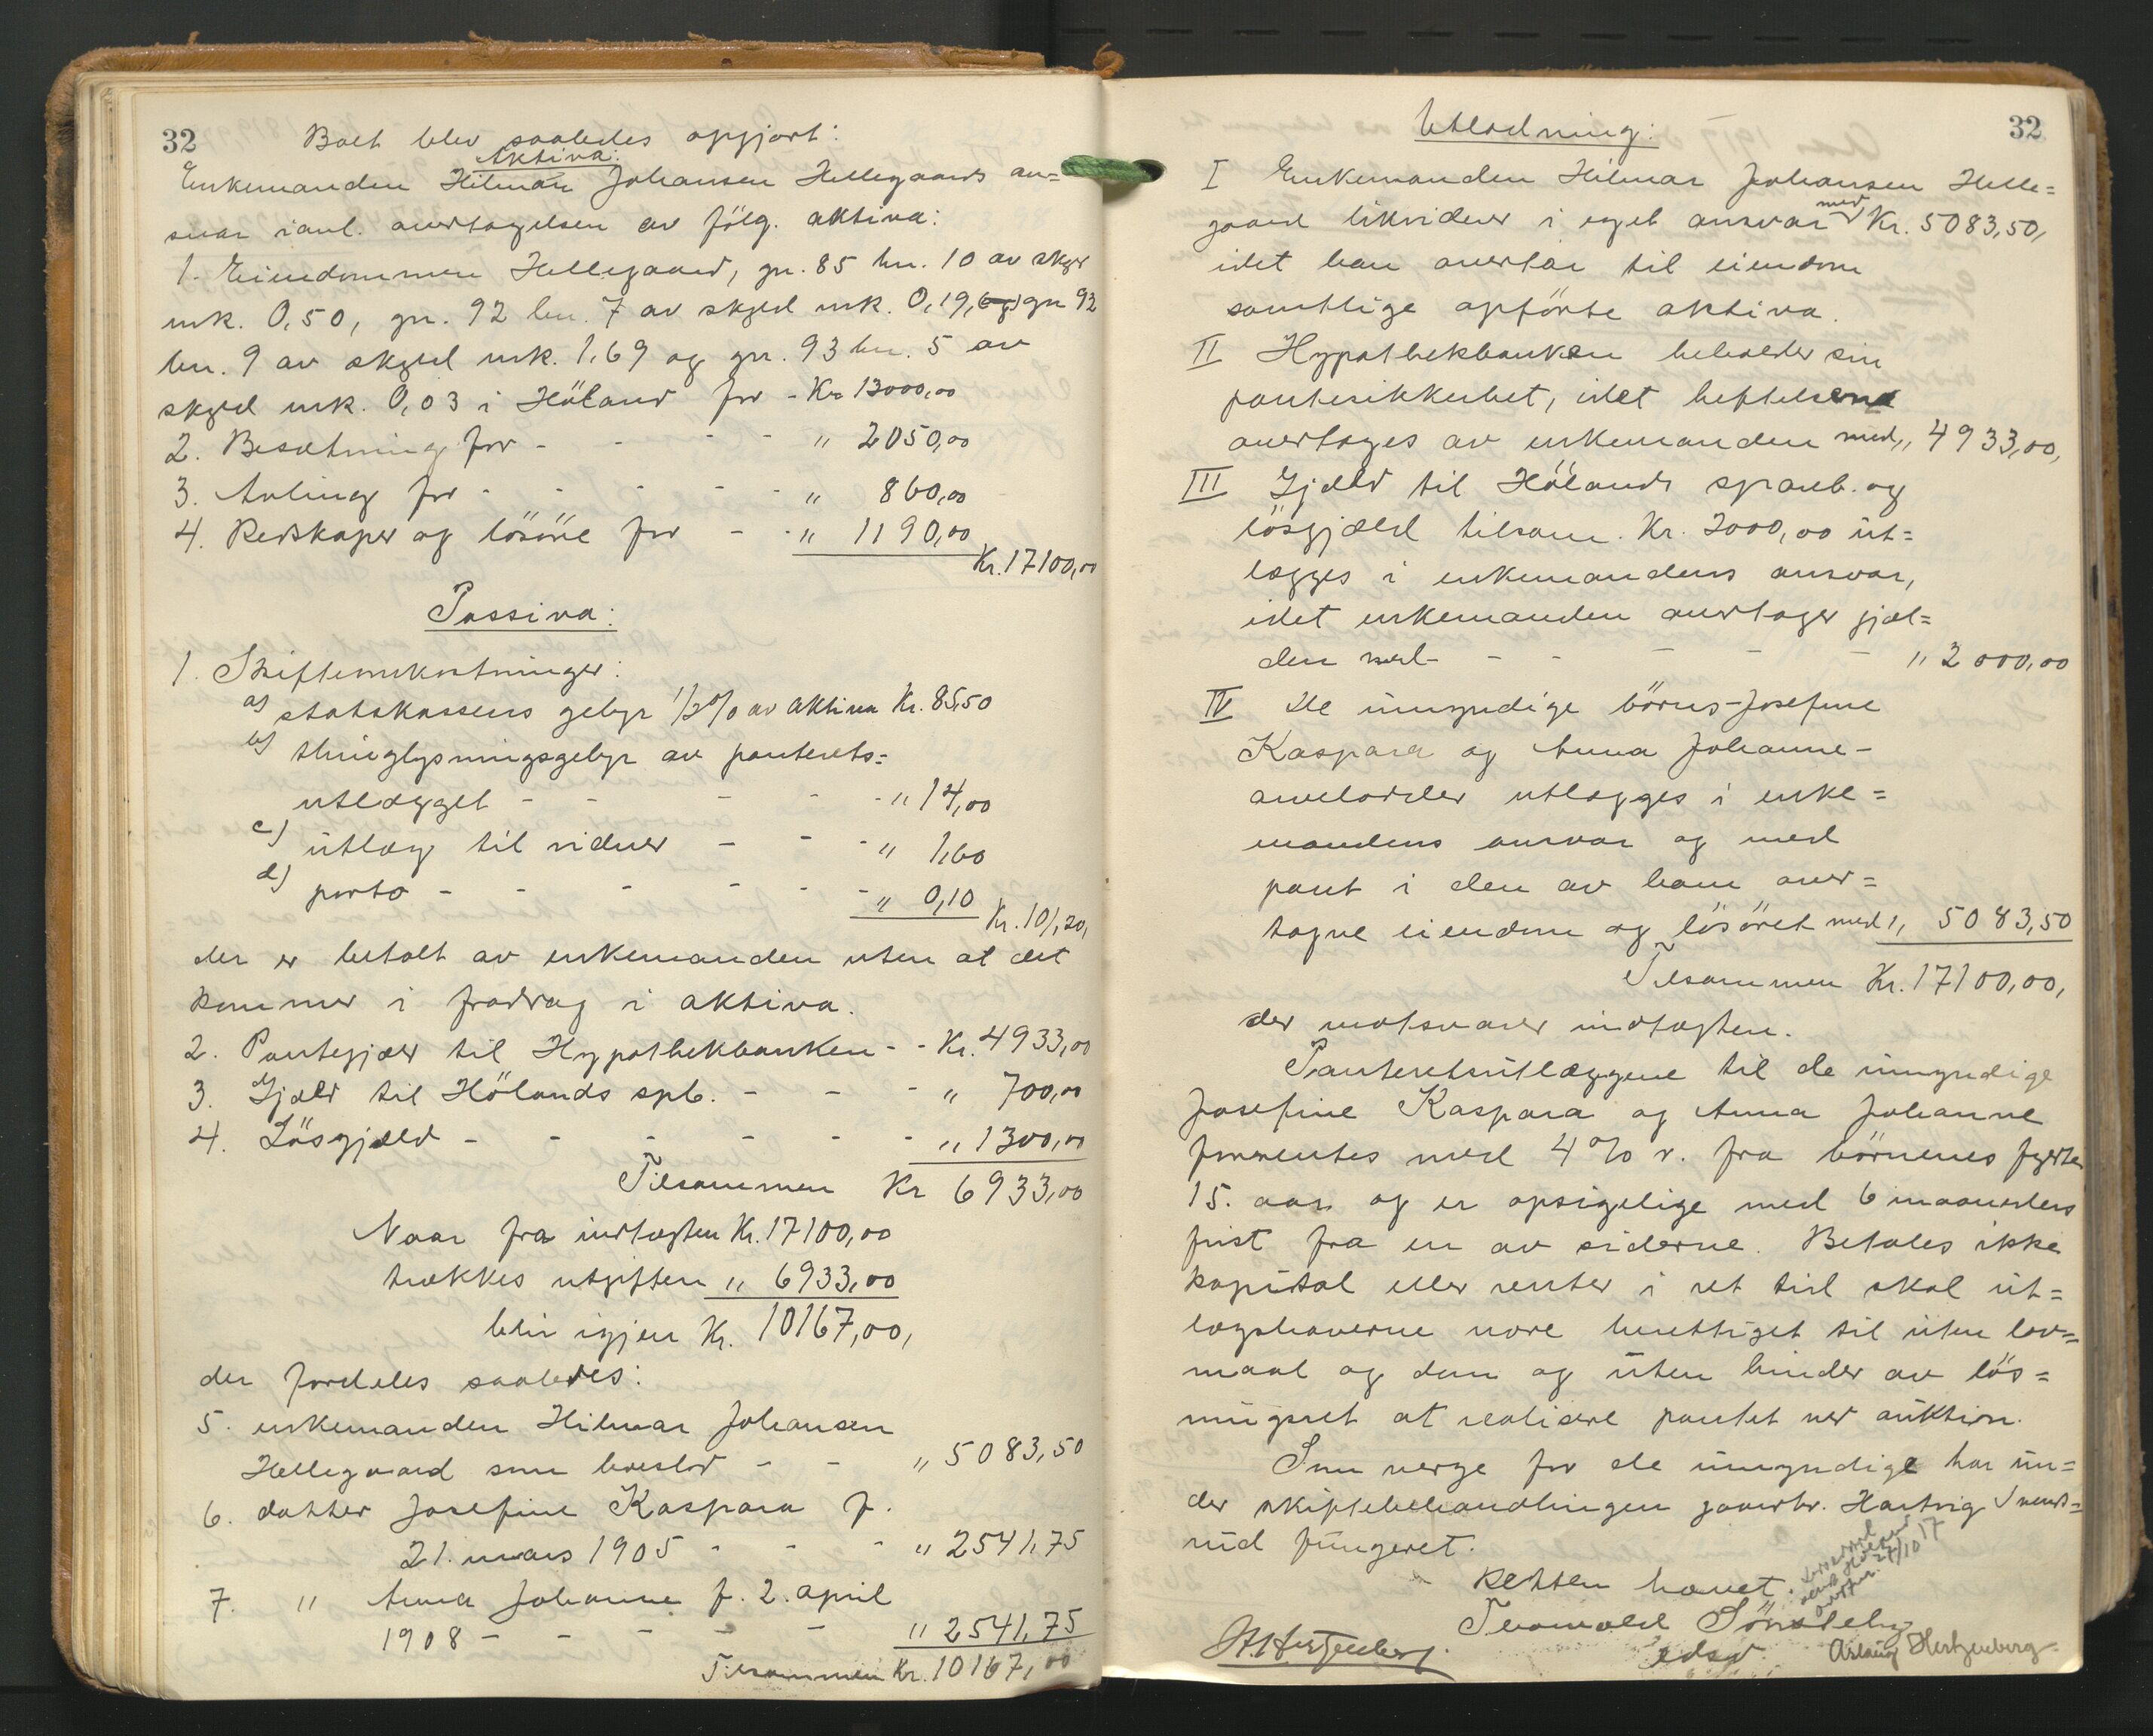 32
Boet blev saaledes opgjort:
Aktiva:
Enkemanden Hilmar Johansen Hellegaards an=
svar ianl. overtagelsen av fölg. aktiva:
1. Eiendommen Hellegaard, gn. 85 bn. 10 av skyld
mk. 0,50, gn. 92 bn. 7 av skyld mk. 0,19, gn 92
bn. 9 av skyld mk. 1,69 og gn. 93 bn. 5 av
skyld mk. 0,03 i Höland for - Kr 13000,00
2. Besætning for - - - - " 2050,00
3. Avling for - - - - - " 860,00
4. Redskaper og lösöre for - - " 1190,00
Kr. 17100,00
Passiva:
1. Skifteomkostninger:
a) statskassens gebyr 1/2% av aktiva Kr. 85,50
b) thinglysningsgebyr av panterets=
utlægget - - - - - " 14,00
c) utlæg til vidner - - - " 1,60
d) porto - - - - - - " 0,10
Kr. 101,20,
der er betalt av enkemanden uten at det
kommer i fradrag i aktiva.
2. Pantegjæld til Hypothekbanken - - Kr. 4933,00
3. Gjæld til Hölands spb. - - - " 700,00
4. Lösgjæld - - - - - - " 1300,00
Tilsammen Kr 6933,00
Naar fra indtægten Kr. 17100,00
trækkes utgiften " 6933,00
blir igjen Kr. 10167,00,
der fordeles saaledes:
5. enkemanden Hilmar Johansen
Hellegaard som boeslod - - " 5083,50
6. datter Josefine Kaspara f.
21. mars 1905 - - - " 2541,75
7. " Anna Johanne f. 2. april
1908 - - - - - " 2541,75
Tilsammen Kr. 10167,00
32
Utlodning:
I Enkemanden Hilmar Johansen Helle=
gaard likviderer i eget ansvar med Kr. 5083,50,
idet han overtar til eiendom
samtlige opförte aktiva.
II Hypothekbanken beholder sin
pantesikkerhet, idet heftelsene
overtages av enkemanden med " 4933,00,
III Gjæld til Hölands spareb. og
lösgjæld tilsam. Kr. 2000,00 ut=
lægges i enkemandens ansvar,
idet enkemanden overtager gjæl=
den med - - - - - " 2000,00
IV De umyndige börns - Josefine
Kaspara og Anna Johanne -
arvelodder utlægges i enke=
mandens ansvar og med
pant i den av ham over=
tagne eiendom og lösöret med " 5083,50
Tilsammen Kr. 17100,00,
der motsvarer indtægten.
Panteretsutlæggene til de umyndige
Josefine Kaspara og Anna Johanne
forrentes med 4% r. fra börnenes fyldte
15. aar og er opsigelige med 6 maaneders
frist fra en av siderne. Betales ikke
kapital eller renter i ret tid skal ut=
lægshaverne være berettiget til uten lov=
maal og dom og uten hinder av lös=
ningsret at realisere pantet ved auktion.
Som verge for de umyndige har un=
der skiftebehandlingen gaardbr. Hartvig
rud fungeret.
Retten hævet.
27/10 17
Thorvald Sönsteby
edsv.
Aslaug Hertzenberg
Hertzenberg.